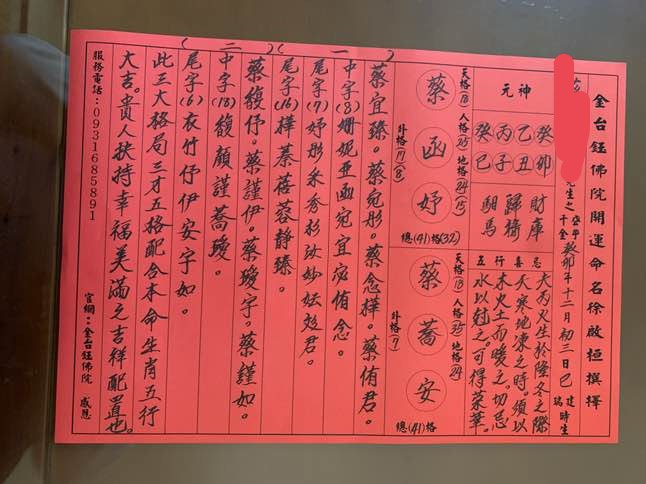 金台鈺佛院開運命名徐啟桓撰擇
先生之千金癸卯年十二月初三日巳時建瑞生
元神
癸卯
乙丑
丙子
癸巳
財庫
歸祿
驛馬
五行喜忌
丙火生於隆冬之際
天寒地凍之時。須以
木火土而暖之。切忌
水以尅之。可得榮華。
天格(18)人格(25)地格(24)(15)
蔡函妤
外格(17)(8)
總(41)格(32)
天格(18)人格(35)地格(24)
蔡蕎安
外格(7)
總(41)格
(一)
蔡宜臻。蔡宛彤。蔡念樺。蔡侑君。
中字(8)姍妮亞函宛宜宓侑念。
尾字(7)妤彤釆秀杉汝妙妘彣君。
尾字(16)樺蓁蓓蓉静臻。
(二)
蔡馥伃。蔡謹伊。蔡璦宇。蔡謹如。
中字(18)馥顏謹蕎璦。
尾字(6)衣竹伃伊安宇如。
此三大格局三才五格配合本命生肖五行
大吉。貴人扶持幸福美滿之吉祥配置也。
服務電話:0931685891
官網:金台鈺佛院 感恩